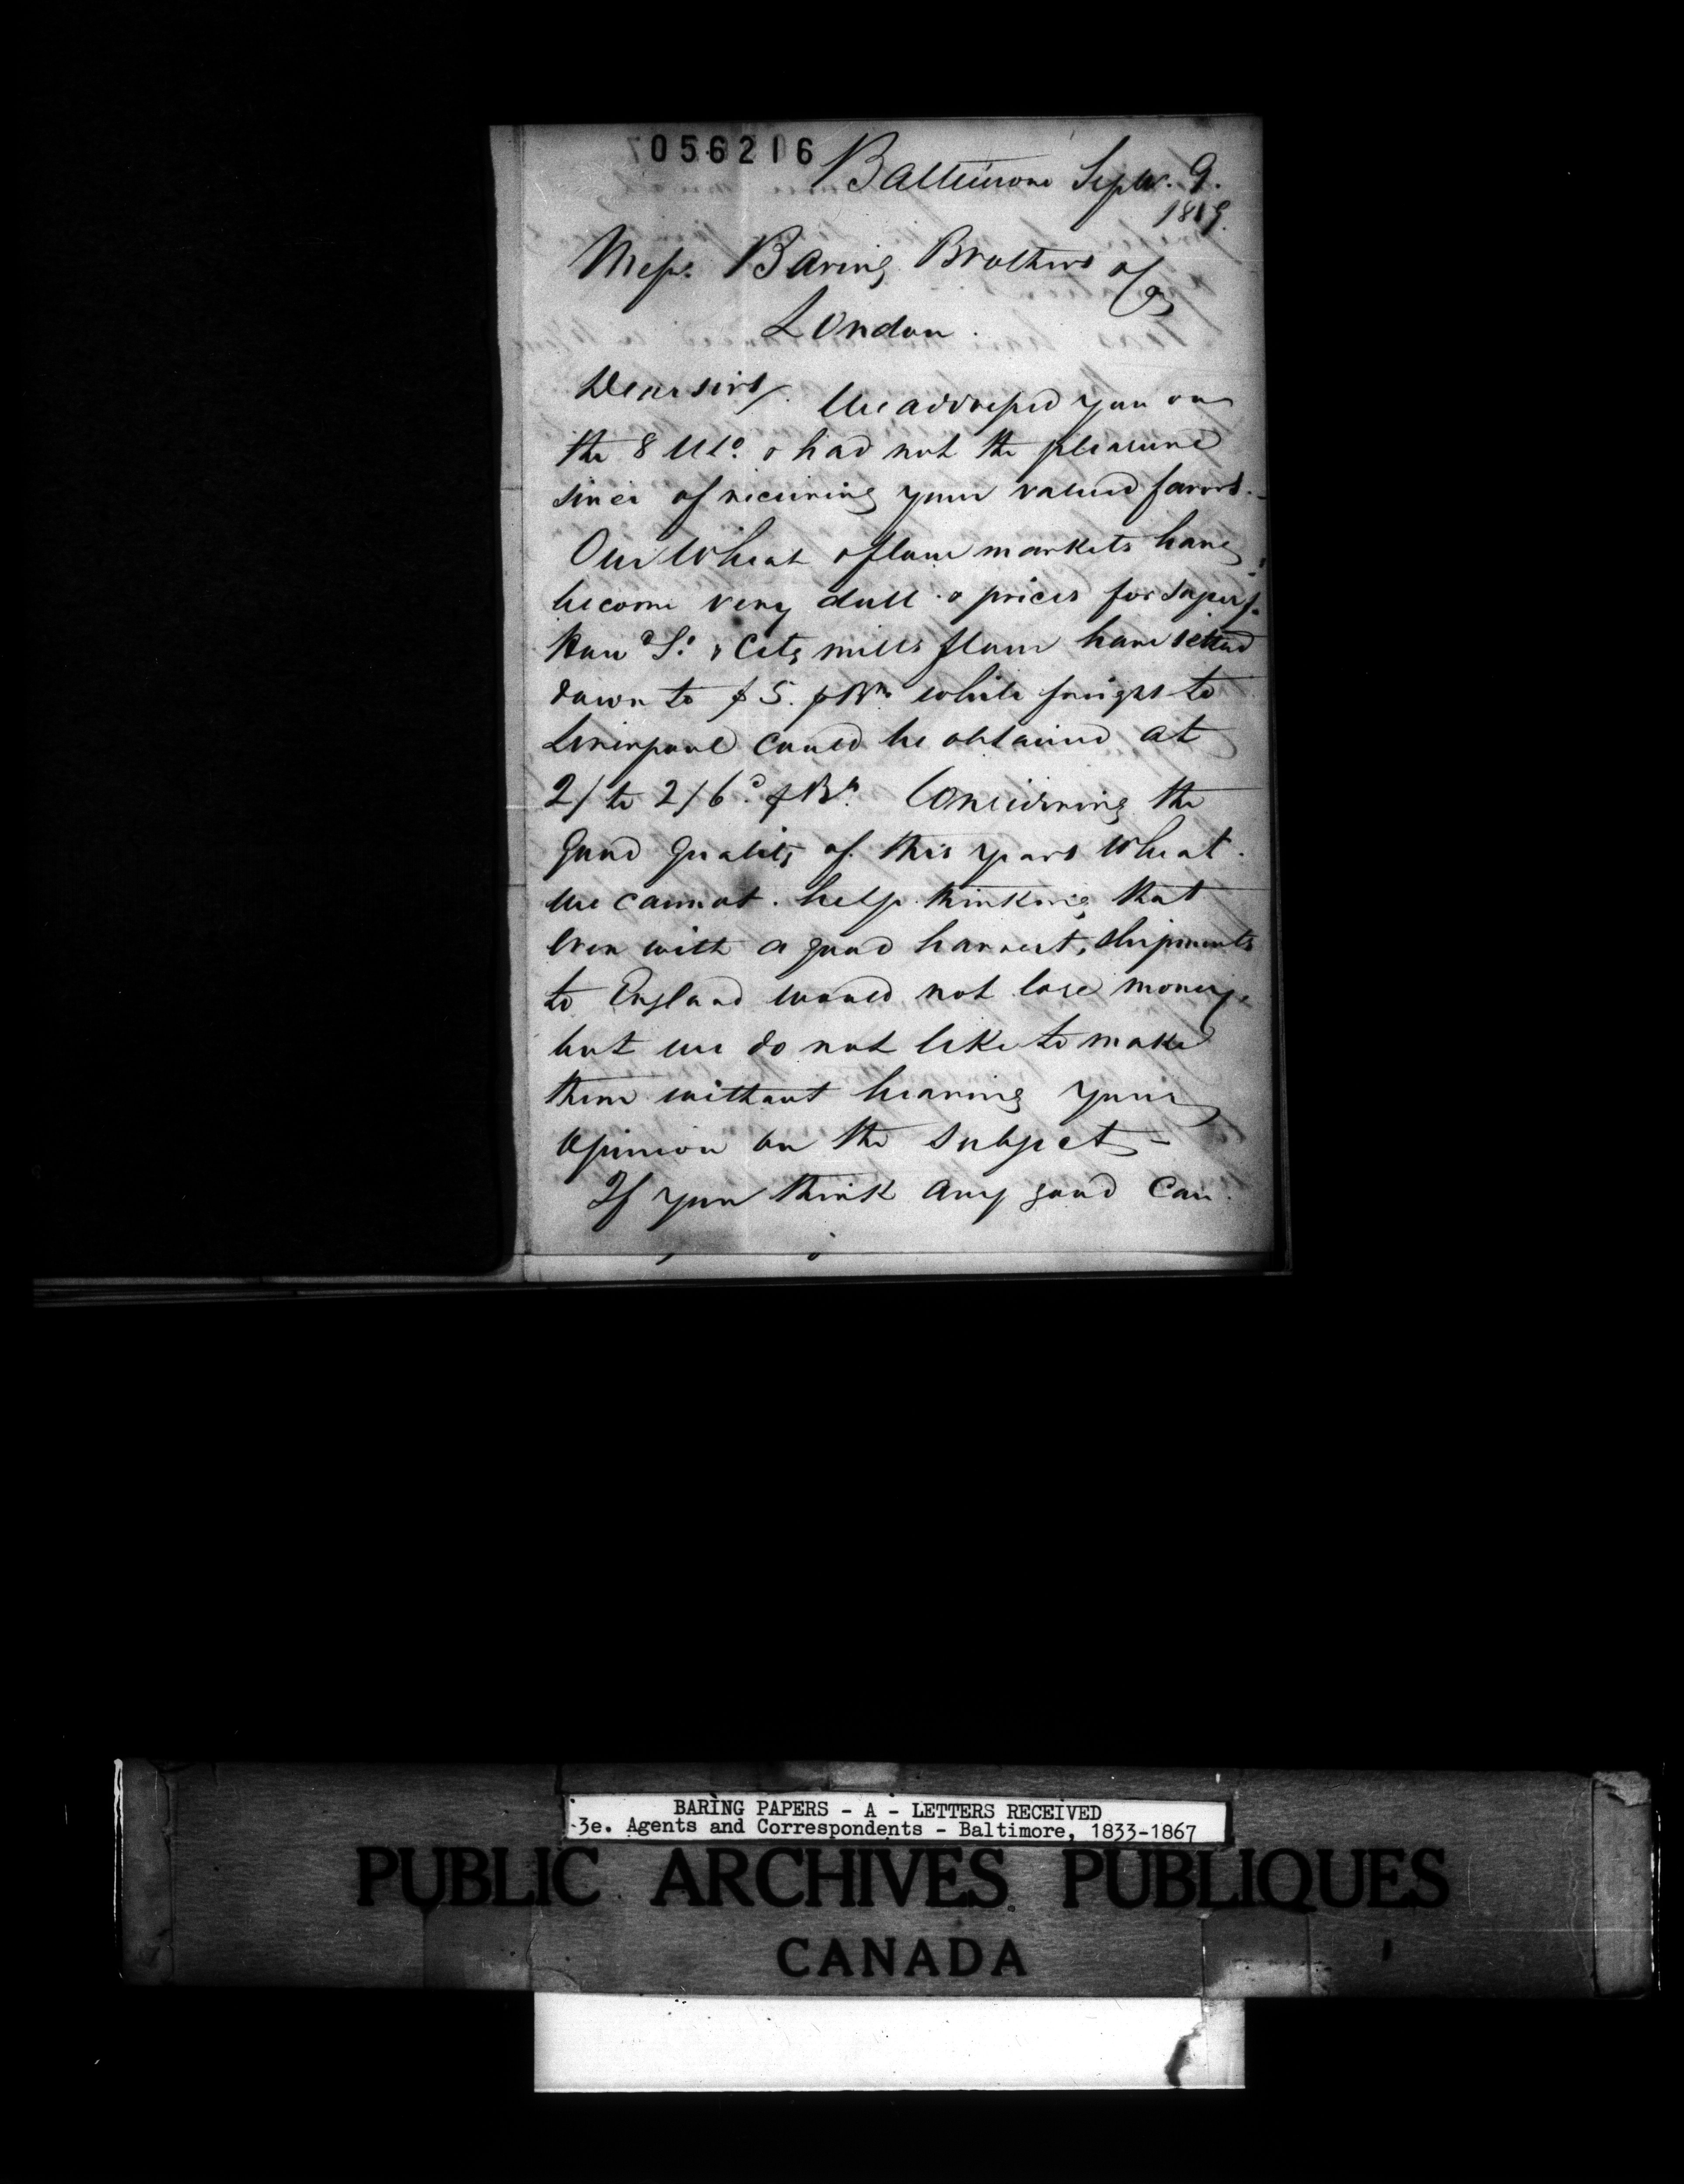 056216
Baltimore Septr. 9.
Messrs. Baring Brothers & Co
London.
Dear sirs/. We addressed you on
the 8 Ulto. & had not the pleasure
since of receiving your valued favors.-
Our Wheat & flour markets have
become very dull & prices for superf.
How d St. & City mills flour have settled
down to $5. p Br. while freight to
Liverpool could be obtained at
2/ to 2/6d. p Br. Considering the
good quality of this years Wheat.
we cannot help thinking that
even with a good harvest, shipments
to England would not lose money,
but we do not like to make
them without hearing your
opinion on the subject -
If you think any good can
BARING PAPERS - A - LETTERS RECEIVED
3e. Agents and Correspondents - Baltimore, 1833-1867
PUBLIC ARCHIVES PUBLIQUES
CANADA